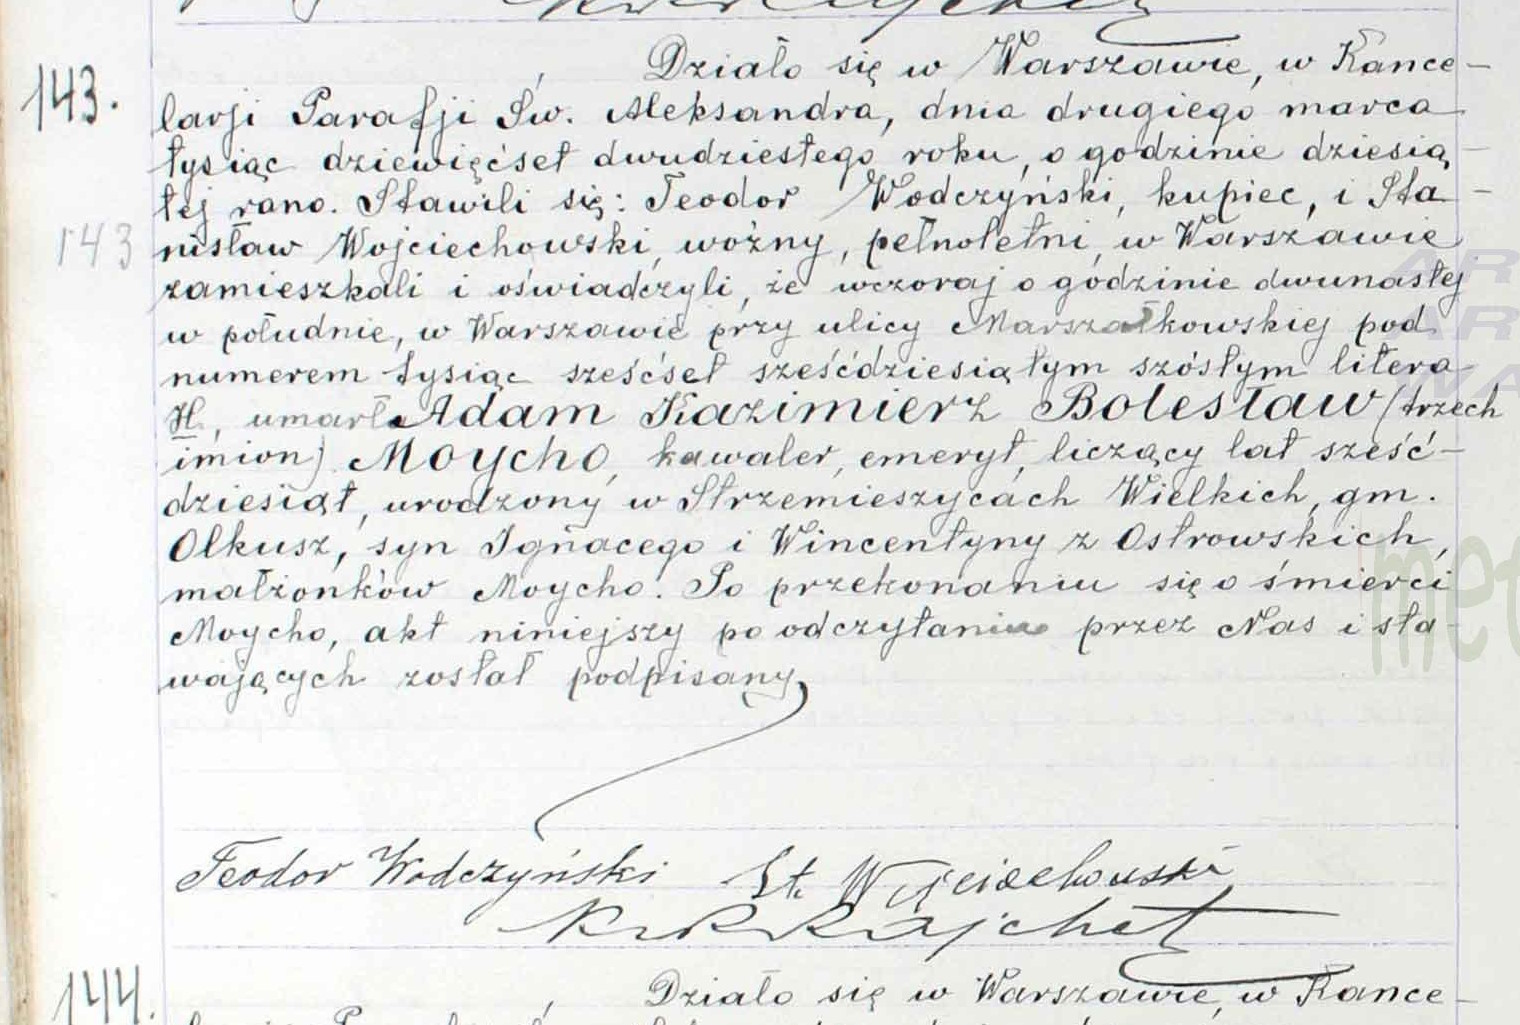 143. Działo się w Warszawie, w Kance-
larji Parafji Św. Aleksandra, dnia drugiego marca
tysiąc dziewięćset dwudziestego roku, o godzinie dziesią-
tej rano. Stawili się: Teodor Wodczyński, kupiec, i Sta-
143 nisław Wojciechowski, woźny, pełnoletni, w Warszawie
zamieszkali i oświadczyli, że wczoraj o godzinie dwunastej
w południe, w Warszawie przy ulicy Marszałkowskiej pod
numerem tysiąc sześćset sześćdziesiątym szóstym litera
H., umarł Adam Kazimierz Bolesław (trzech
imion) Moycho, kawaler, emeryt, liczący lat sześć-
dziesiąt, urodzony w Strzemieszycach Wielkich, gm.
Olkusz, syn Ignacego i Wincentyny z Ostrowskich,
małżonków Moycho. Po przekonaniu się o śmierci
Moycho, akt niniejszy po odczytaniu przez Nas i sta-
wających został podpisany,
Teodor Wodczyński St. Wojciechowski
144. Działo się w Warszawie, w Kance-